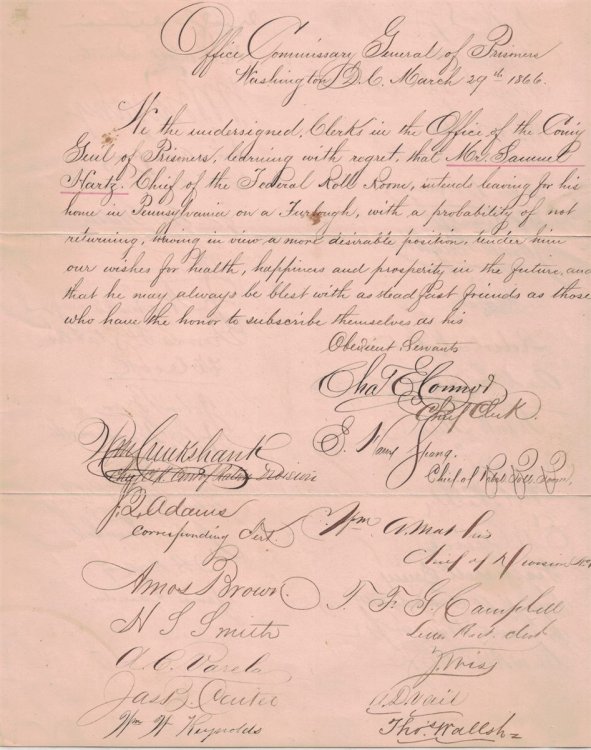 Office Commissary General of Prisoners
Washington D.C. March 29th 1866.
We the undersigned, Clerks in the Office of the Comy
Genl of Prisoners, learning with regret, that Mr. Samuel
Hartz. Chief of the Federal Roll Room, intends leaving for his
home in Pennsylvania on a Furlough, with a probability of not
returning, having in view a more desirable position, tender him
our wishes for health, happiness and prosperity in the future, and
that he may always be blest with as steadfast friends as those
who have the honor to subscribe themselves as his
Obedient Servants
Chas E Connor
Chief Clerk.
Wm Cruikshank
Division
Chief of Rebel Roll Room.
J. Q. Adams
Corresponding
Wm.
Chief of Division
Amos Brown
T. F. G. Campbell
H S Smith
J. Wiss
A. C. Varela
A. D. Vail
Wm W Reynolds
Thos Wallsh